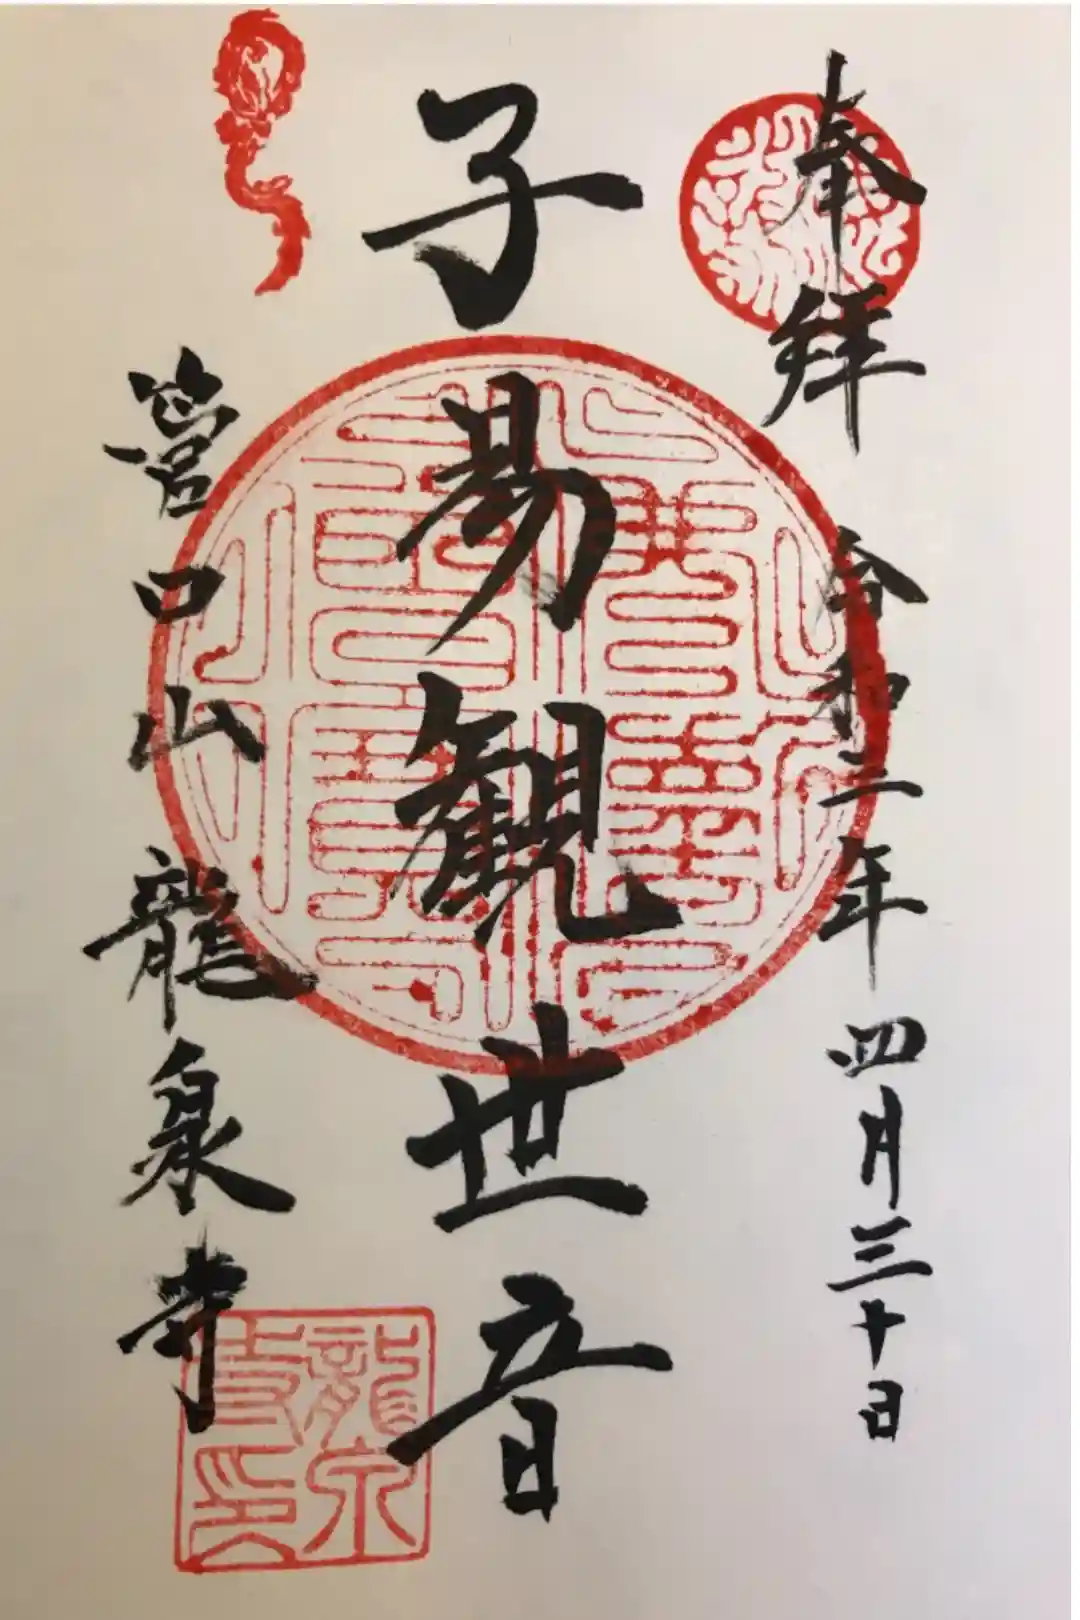 奉拝 令和二年四月三十日
子易観世音
菅口山 龍泉寺
龍泉寺印